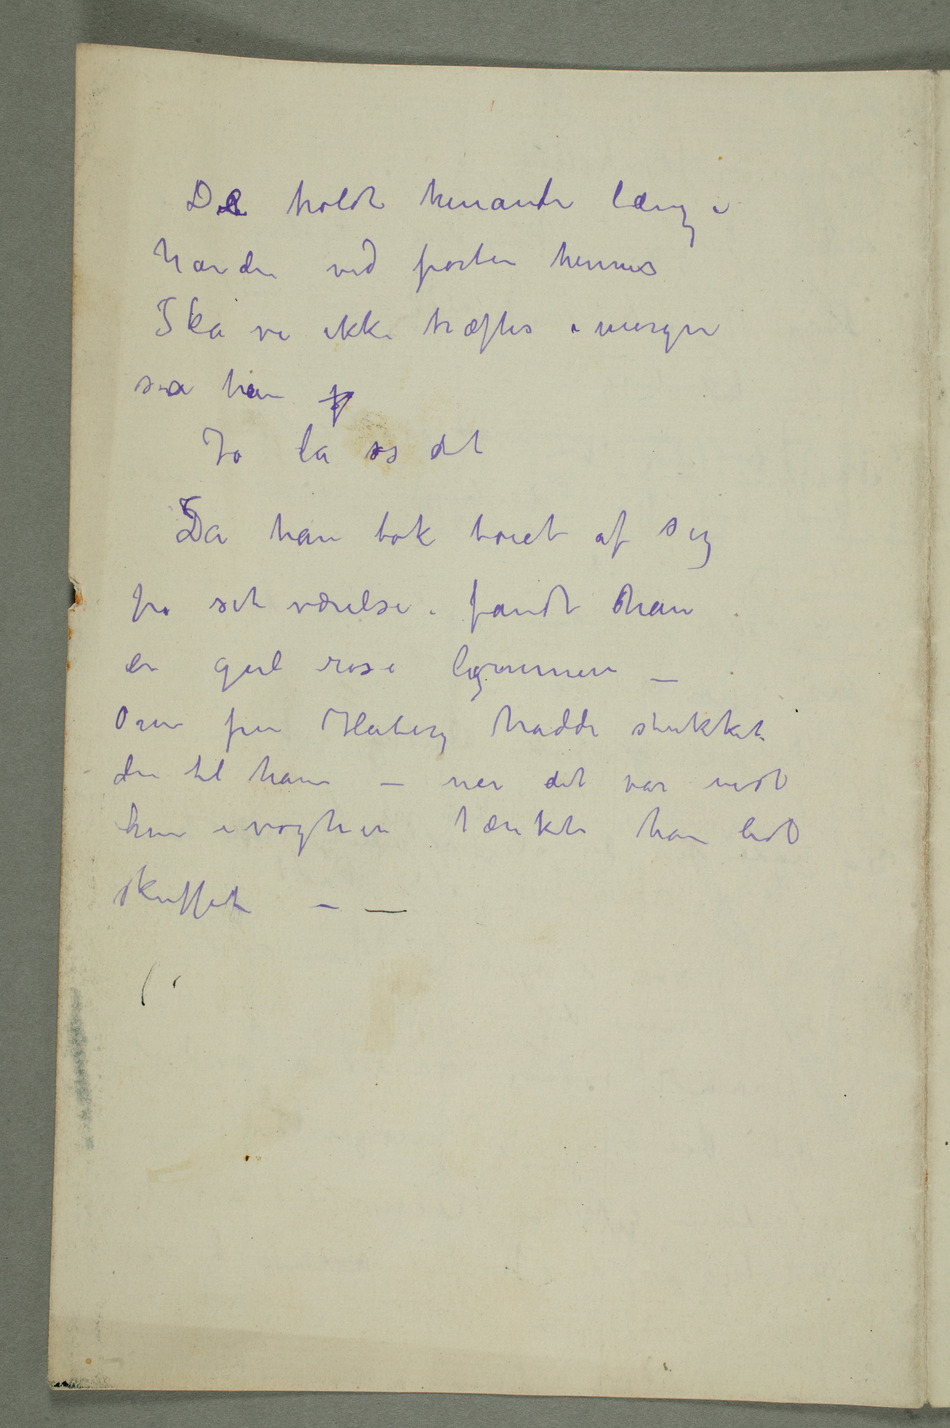 De holdt hinanden længe i
hænder ved porten hennes
Ska vi ikke træffes i morgen
sa han
Jo la os det
Da han tok tøiet af sig
på sit værelse fandt han
en gul rose i lommen _
Den fru Heiberg hadde stukket
den til ham – når det var
hun i tænkte han lidt
skuffet – —